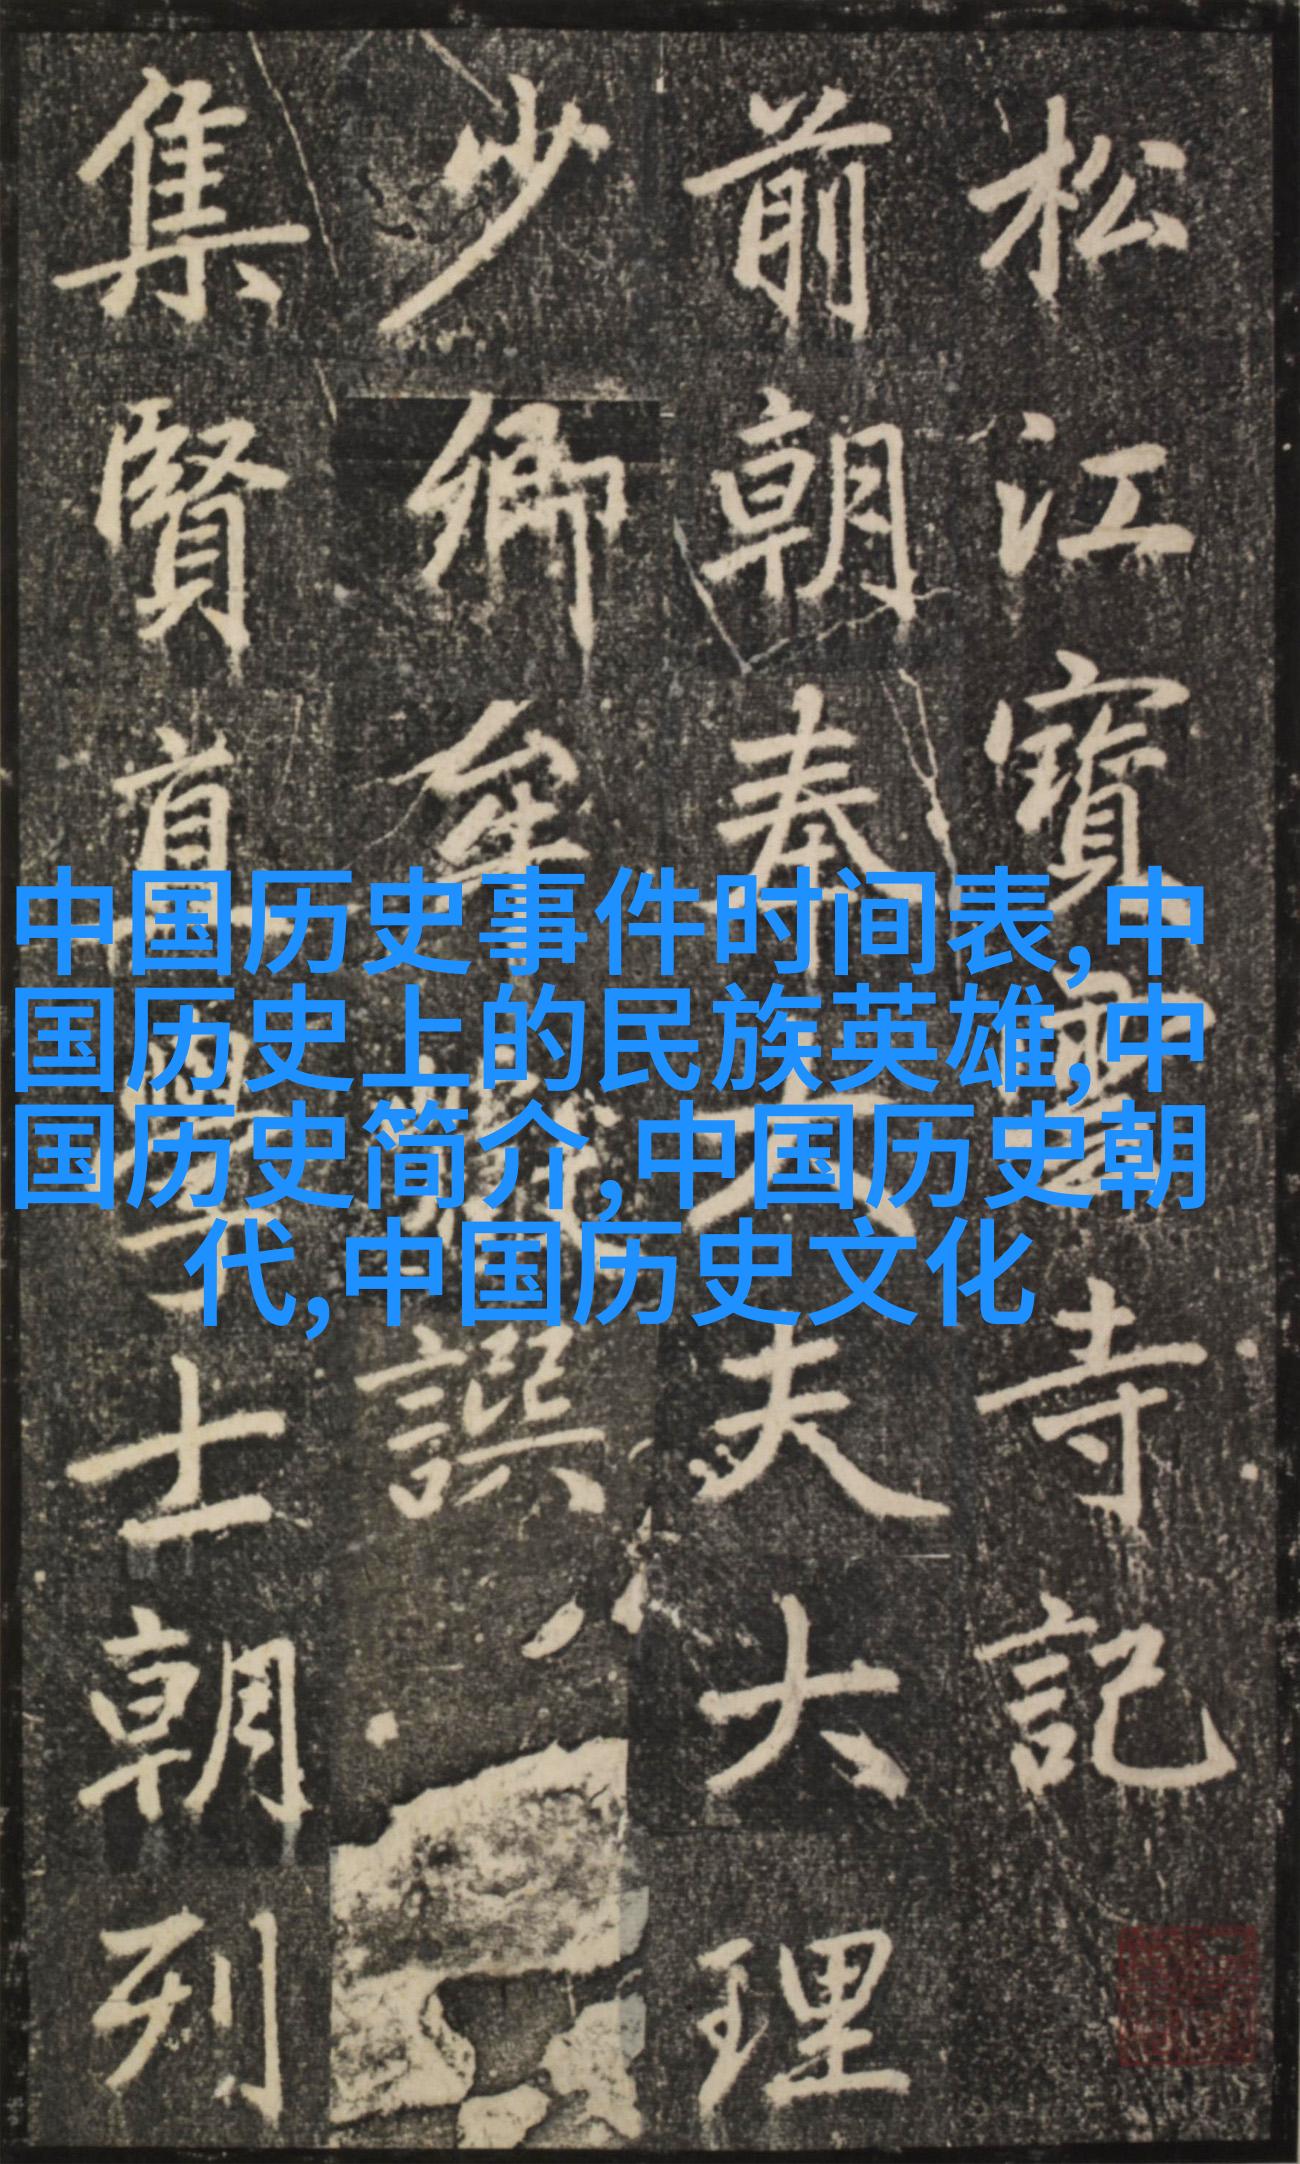 松江寶雲寺記
前朝奉大夫大理
少卿牟巘譔
集賢直學士朝列
中国历史事件时间表,中
国历史上的民族英雄,中
国历史简介,中国历史朝
代,中国历史文化